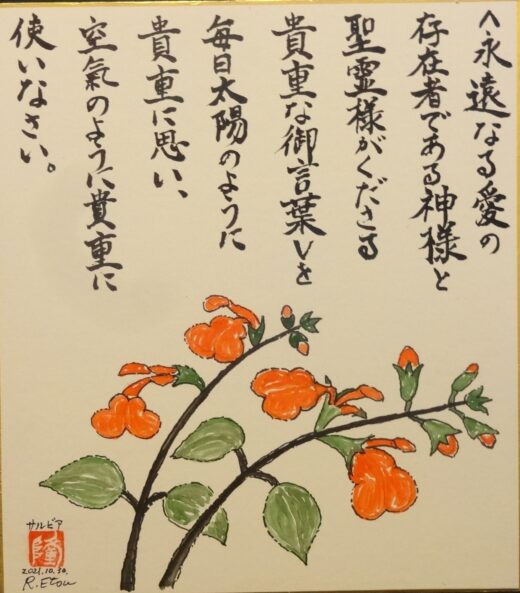 ＜永遠なる愛の
存在者である神様と
聖霊様がくださる
貴重な御言葉＞を
毎日太陽のように
貴重に思い、
空氣のように貴重に
使いなさい。
サルビア
隆
2021.10.30.
R.Etou